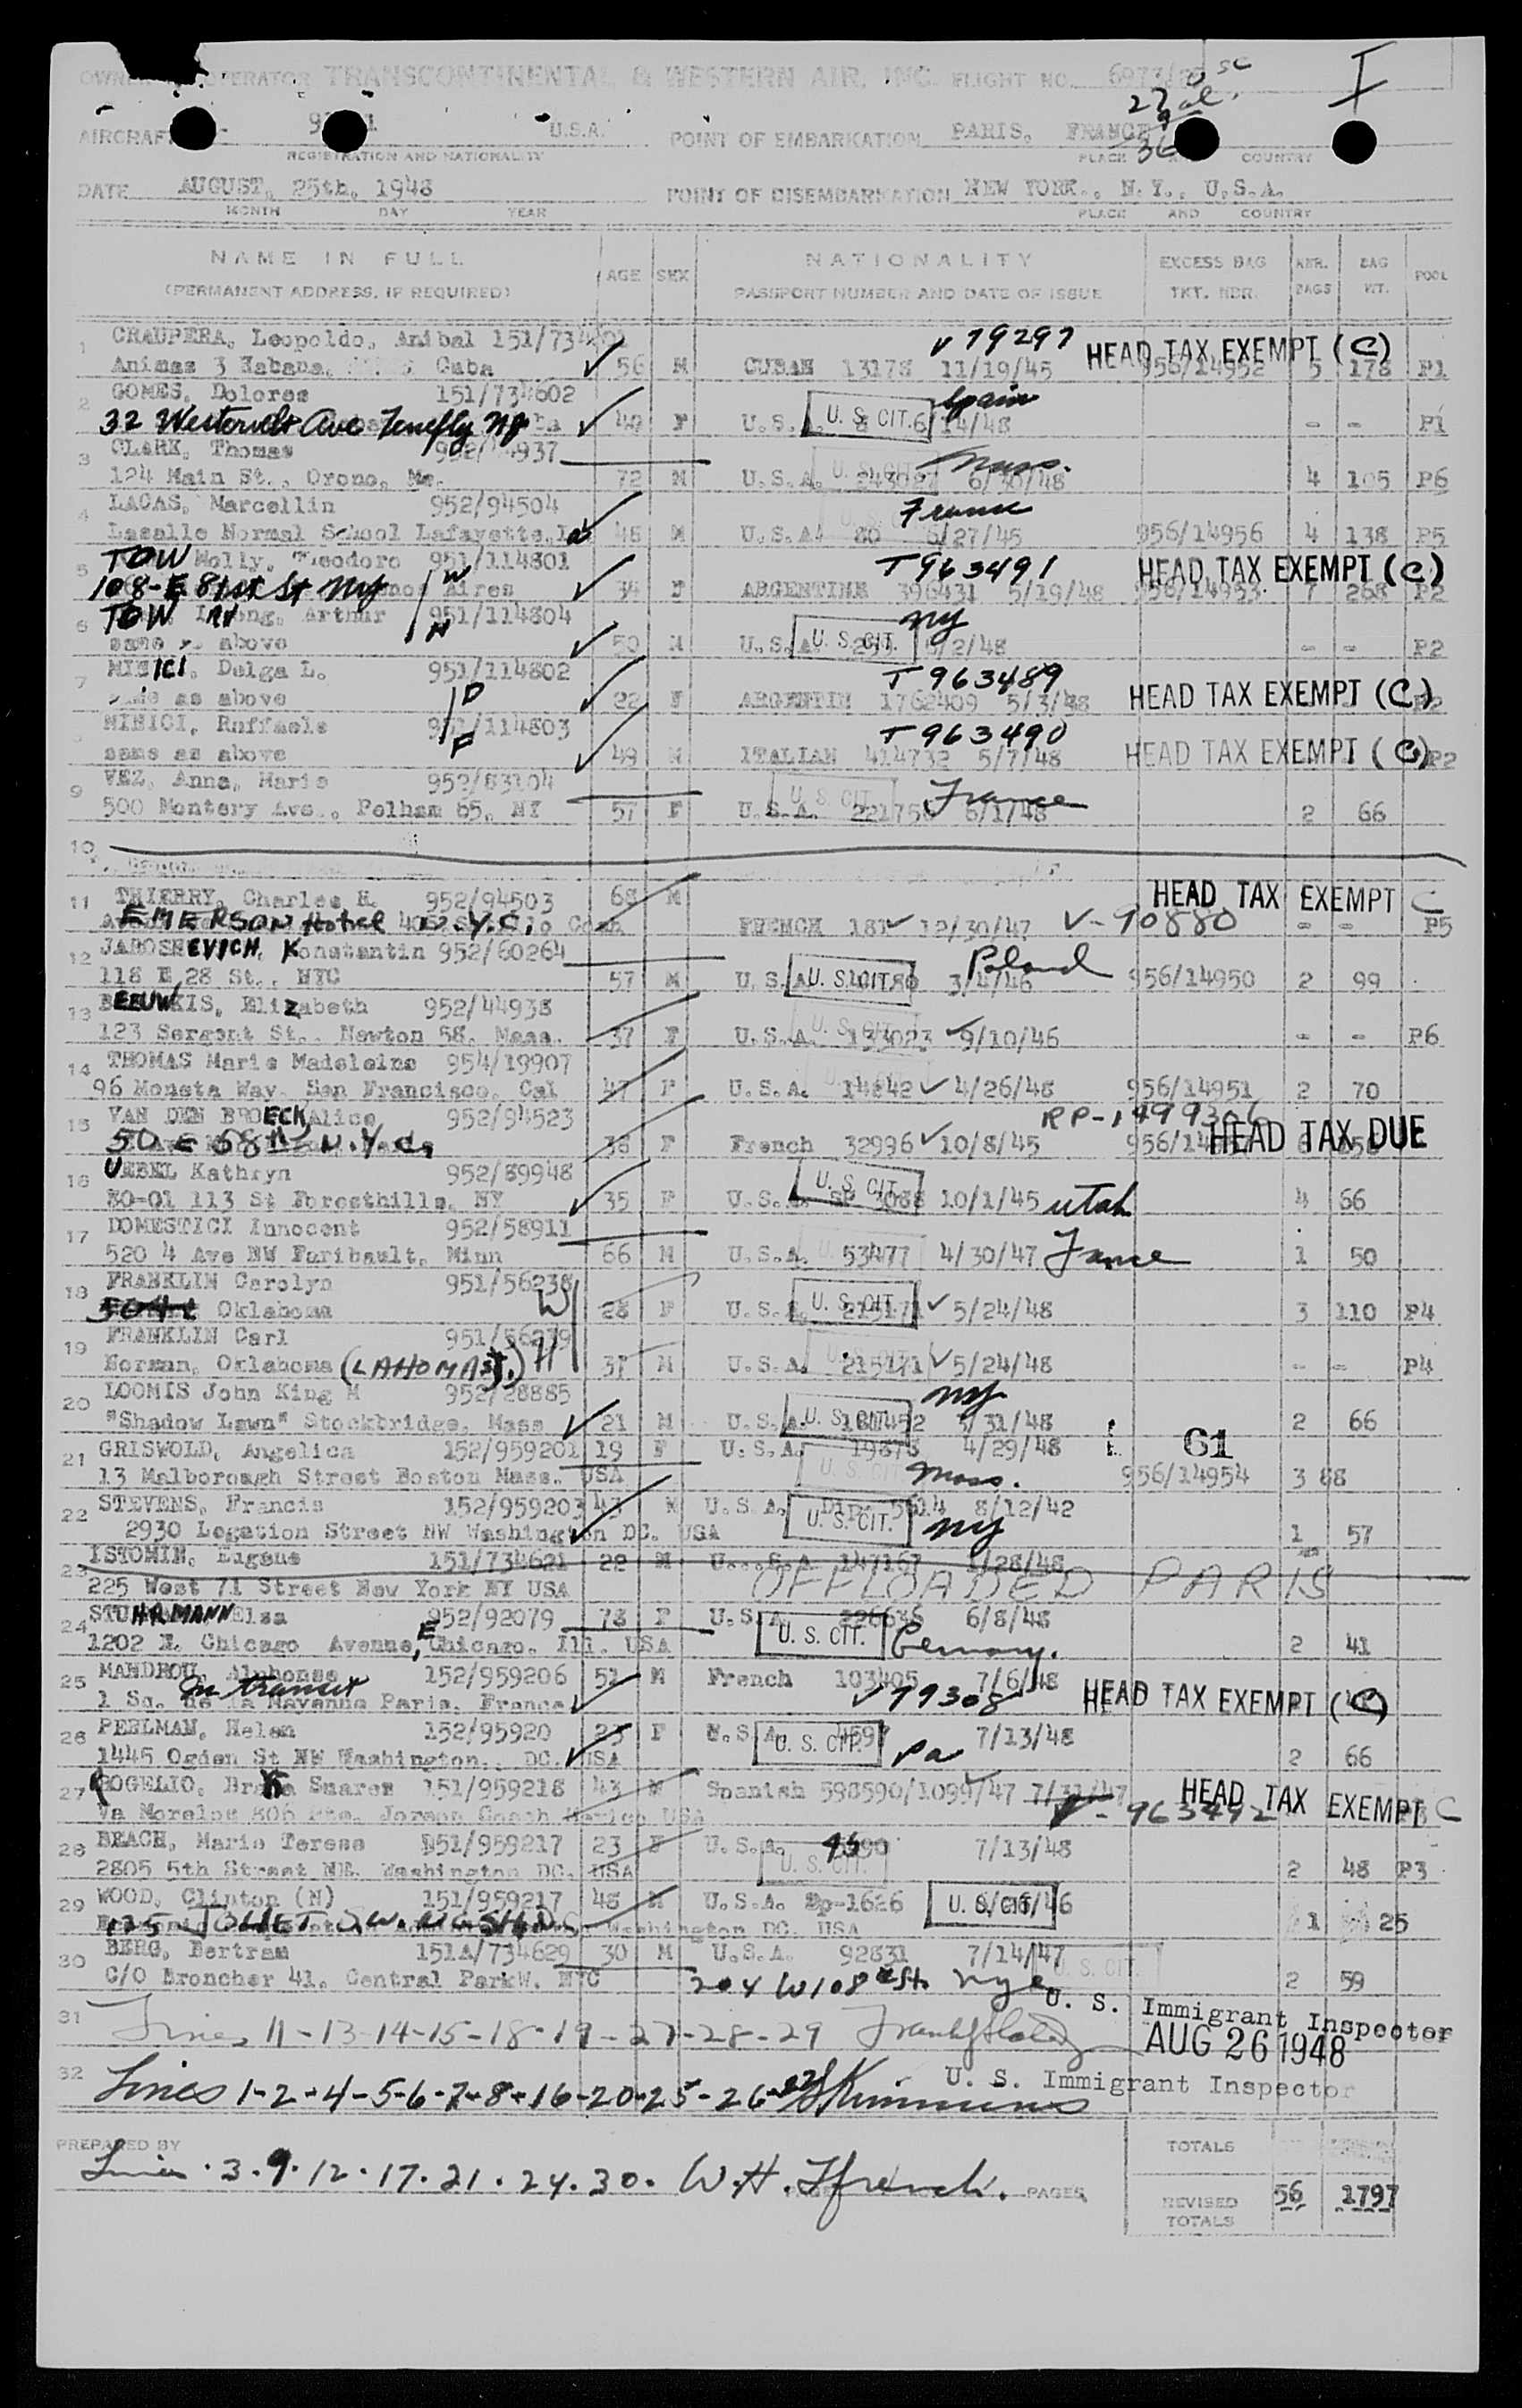 OPERATOR TRANSCONTINENTAL & WESTERN AIR, INC. FLIGHT NO. 6973/
27 al.
9
36
I
AIRCRAFT U.S.A. POINT OF EMBARKATION PARIS, FRANCE
REGISTRATION AND NATIONALITY PLACE COUNTRY
DATE AUGUST, 25th, 1948 POINT OF DISEMBARKATION NEW YORK., N.Y., U.S.A.
MONTH DAY YEAR PLACE AND COUNTRY
NAME IN FULL AGE SEX NATIONALITY EXCESS BAG NBR. BAG POOL
(PERMANENT ADDRESS, IF REQUIRED) PASSPORT NUMBER AND DATE OF ISSUE TKT. NBR. BAGS WT.
1 CRAUPERA, Leopoldo, Anibal V 79297 HEAD TAX EXEMPT (C)
Animas 3 Habana, Cuba 56 M CUBAN 13178 11/19/45 956/14952 5 178 P1
2 GOMES, Dolores 151/734602 Spain
32 Westervelt Ave Tenefly NJ 49 F U.S.A. U. S. CIT. 6/14/48 - - P1
3 CLARK, Thomas Mass.
124 Main St., Orono, Me. 72 M U.S.A. U. S. CIT. 6/30/48 4 105 P6
4 LACAS, Marcellin 952/94504 France
Lasalle Normal School Lafayette, La 48 M U.S.A. 80 6/27/45 956/14956 4 138 P5
5 TOW Molly, Teodoro 951/114801 T 963491 HEAD TAX EXEMPT (C)
108-E 81st St NY Aires W F ARGENTINE 396431 5/19/48 956/14953 7 268 P2
6 TOW Arthur 951/114804 NY
same as above H 50 M U.S.A. U. S. CIT. /2/48 - - P2
7 MINICI, Delga L. 951/114802 T 963489
same as above D 22 F ARGENTIN 1762409 5/3/48 HEAD TAX EXEMPT (C) P2
MINICI, Raffaele 951/114803 T 963490
same as above F 49 M ITALIAN 414732 5/7/48 HEAD TAX EXEMPT (C) P2
9 VEZ, Anna, Marie 952/83104 France
500 Montery Ave., Pelham 65, NY 57 F U.S.A. U. S. CIT. 6/1/48 2 66
10
11 THIERRY, Charles H. 952/94503 68 M HEAD TAX EXEMPT C
EMERSON Hotel N.Y.C. FRENCH 12/30/47 V-90880 - - P5
12 JAROSHEVICH, Konstantin 952/60264 Poland
118 E 28 St., NYC 57 M U.S.A. U. S. CIT. 3/4/46 956/14950 2 99
13 BEEUWKIS, Elizabeth 952/44938
123 Sergent St., Newton 58, Mass. 37 F U.S.A. U. S. CIT. 133023 9/10/46 - - P6
14 THOMAS Marie Madeleine 954/19907
96 Monsta Way, San Francisco, Cal 47 F U.S.A. 14842 4/26/48 956/14951 2 70
15 VAN DEN BROECK Alice 952/94523 RP-1499306
50 E 68th N.Y.C. 38 F French 32996 10/8/45 HEAD TAX DUE
16 UEBEL Kathryn 952/89948
80-01 113 St Foresthills, NY 35 F U.S. U. S. CIT. 10/1/45 Utah 4 66
17 DOMESTICI Innocent 952/58911
520 4 Ave NW Faribault, Minn 66 M U.S.A. 53477 4/30/47 France 1 50
18 FRANKLIN Carolyn 951/56238
Oklahoma W 28 F U.S. U. S. CIT. 215171 5/24/48 3 110 P4
19 FRANKLIN Carl 951/56279
Norman, Oklahoma (LAHOMA ST.) H 37 M U.S.A. 215171 5/24/48 - - P4
20 LOOMIS John King M 952/28885 NY
"Shadow Lawn" Stockbridge, Mass 21 M U.S.A. U. S. CIT. /31/48 2 66
21 GRISWOLD, Angelica 152/959201 19 F U.S.A. 19878 4/29/48 61
13 Malborough Street Boston Mass. USA U. S. CIT. Mass. 956/14954 3 88
22 STEVENS, Francis 152/959203 43 M U.S.A. Dip. 5614 8/12/42
2930 Legation Street NW Washington DC. USA U. S. CIT. NY 1 57
23 ISTOMIN, Eugene 151/734621 22 M U.S.A 147167 1/28/48
225 West 71 Street New York NY USA OFFLOADED PARIS
24 STUHRMANN Elsa 952/92079 73 F U.S.A. 226636 6/8/48
1202 E. Chicago Avenue, E Chicago. Ill. USA U. S. CIT. Germany. 2 41
25 MANDROU, Alphonse 152/959206 51 M French 103405 7/6/48
In transit 1 Sq. de la Mayenne Paris, France V 79308 HEAD TAX EXEMPT (C)
26 PERLMAN, Helen 152/95920 23 F U.S.A. 7/13/48
1445 Ogden St NW Washington., DC. USA U. S. CIT. Pa 2 66
27 ROGELIO, Suarez 151/959218 43 M Spanish 598590/1099/47 7/31/47 HEAD TAX EXEMPT C
Va Morelos 806 Pte, Mexico USA V-963492
28 BEACH, Marie Terese 151/959217 23 F U.S.A. 7/13/48
2805 5th Street NE. Washington DC. USA U. S. CIT. 2 48 P3
29 WOOD, Clinton (N) 151/959217 48 M U.S.A. Sp-1626 U. S. CIT.
115 JOLIET S.W. WASH D.C. Washington DC. USA 1 25
30 BERG, Bertram 151A/734629 30 M U.S.A. 92831 7/14/47
C/O Broncher 41, Central ParkW. NYC 204 W 108 St. NYC U. S. CIT. 2 59
31 Lines 11-13-14-15-18-19-27-28-29 U. S. Immigrant Inspector
AUG 26 1948
32 Lines 1-2-4-5-6-7-8-16-20-25-26-22 U. S. Immigrant Inspector
PREPARED BY TOTALS
Lines . 3. 9. 12. 17. 21. 24. 30. W. H. Ffrench. PAGES
REVISED TOTALS 56 1797